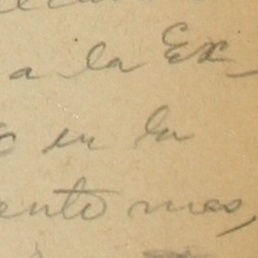 a la Ex-
en la
ente mes,